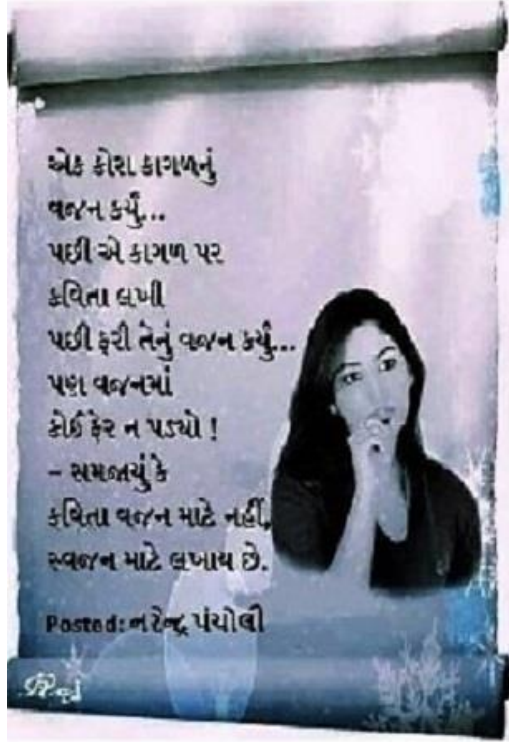 એક કોરા કાગળનું
વજન કર્યું...
પછી એ કાગળ પર
કવિતા લખી
પછી ફરી તેનું વજન કર્યું...
પણ વજનમાં
કોઈ ફેર ન પડ્યો !
- સમજાયું કે
કવિતા વજન માટે નહીં,
સ્વજન માટે લખાય છે.
Posted: નરેન્દ્ર પંચોલી